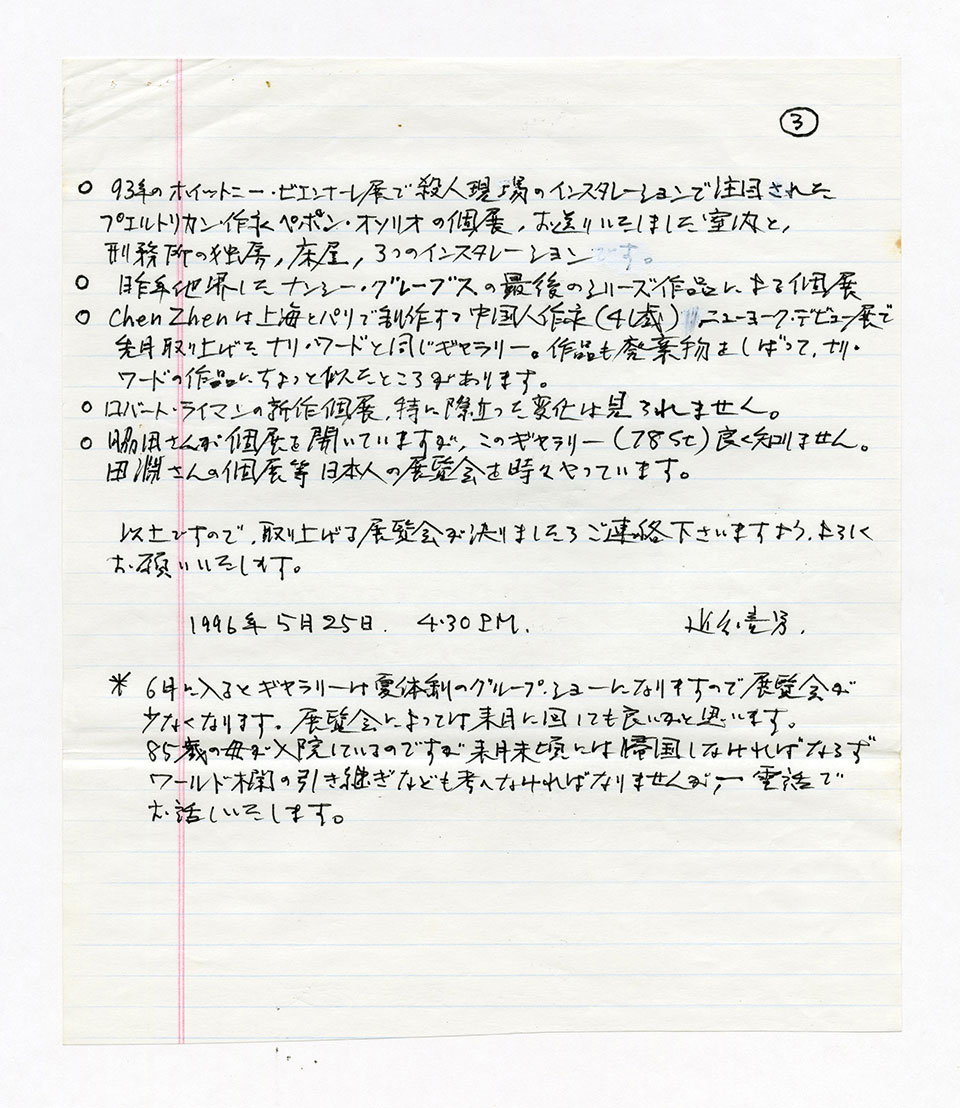 ③
○ 93年のホイットニー・ビエンナーレ展で殺人現場のインスタレーションで注目された
プエルトリカン・作家ペポン・オソリオの個展，お送りいたしました室内と，
刑務所の独房，床屋，3つのインスタレーションです。
○ 昨年他界したナンシー・グレーブスの最後のシリーズ作品による個展
○ Chen Zhenは上海とパリで制作する中国人作家（41歳） ニューヨーク・デビュー展で
先月取上げたナリ・ワードと同じギャラリー。作品も廃棄物をしばって，ナリ・
ワードの作品にちょっと似たところがあります。
○ ロバート・ライマンの新作個展，特に際立った変化は見られません。
○ 脇田さんが個展を開いていますが，このギャラリー（78St）良く知りません。
田淵さんの個展等日本人の展覧会を時々やっています。
以上ですので，取り上げる展覧会が決りましたらご連絡下さいますよう，よろしく
お願いいたします。
1996年5月25日. 4.30 P.M.
* 6月に入るとギャラリーは夏体制のグループ・ショーになりますので展覧会が
少なくなります。展覧会によっては来月に回しても良いかと思います。
85歳の母が入院しているのですが来月末頃には帰国しなければならず
ワールド欄の引き継ぎなども考へなければなりませんが，一電話で
お話しいたします。